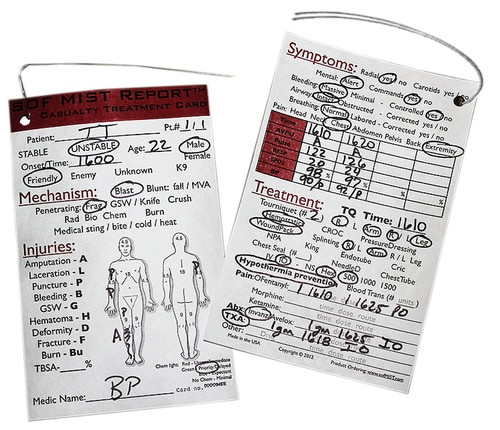 SOF MIST REPORT™
CASUALTY TREATMENT CARD
Patient: II Pt.# 1/1
STABLE UNSTABLE Age: 22 Male
Female
Onset/Time: 1600
Friendly Enemy Unknown K9
Mechanism: Blast Blunt: fall / MVA
Penetrating: Frag GSW / Knife Crush
Rad Bio Chem Burn
Medical sting / bite / cold / heat
Injuries:
Amputation - A
Laceration - L
Puncture - P
Bleeding - B
GSW - G
Hematoma - H
Deformity - D
Fracture - F
Burn - Bu
TBSA-____%
Medic Name: BP
Card no.
Symptoms:
Mental: Alert Radial yes no Carotids yes no
Commands yes no
Bleeding: Massive Minimal - Controlled yes no
Airway: Obstructed - Corrected yes / no
Breathing: Normal Labored - Corrected yes / no
Pain Head Neck Chest Abdomen Pelvis Back Extremity
Time 1610 1620
AVPU A A
Pulse 122 126
Resp 20 24
SPO2 98 % 97 % % %
BP 90/P 92/P
Treatment:
TQ Time: 1610
Tourniquet (# 2) R L Arm R L Leg
Hemostatic CROC PressureDressing
WoundPack Splinting R L Arm R / L Leg
NPA King Endotube Cric
Chest Seal (# ) NeedleD ChestTube
IV IO NS Hex 500 1000 1500
Hypothermia prevention Blood Trans (# units)
Pain: OFentanyl: 1 1610 1 1625 PO
Morphine: time dose route
Ketamine: time dose route
Abx Invanz Avelox: 1gm 1625 IO
TXA 1gm 1618 IO
Other:
Made in the USA Copyright © 2012 Product Ordering: